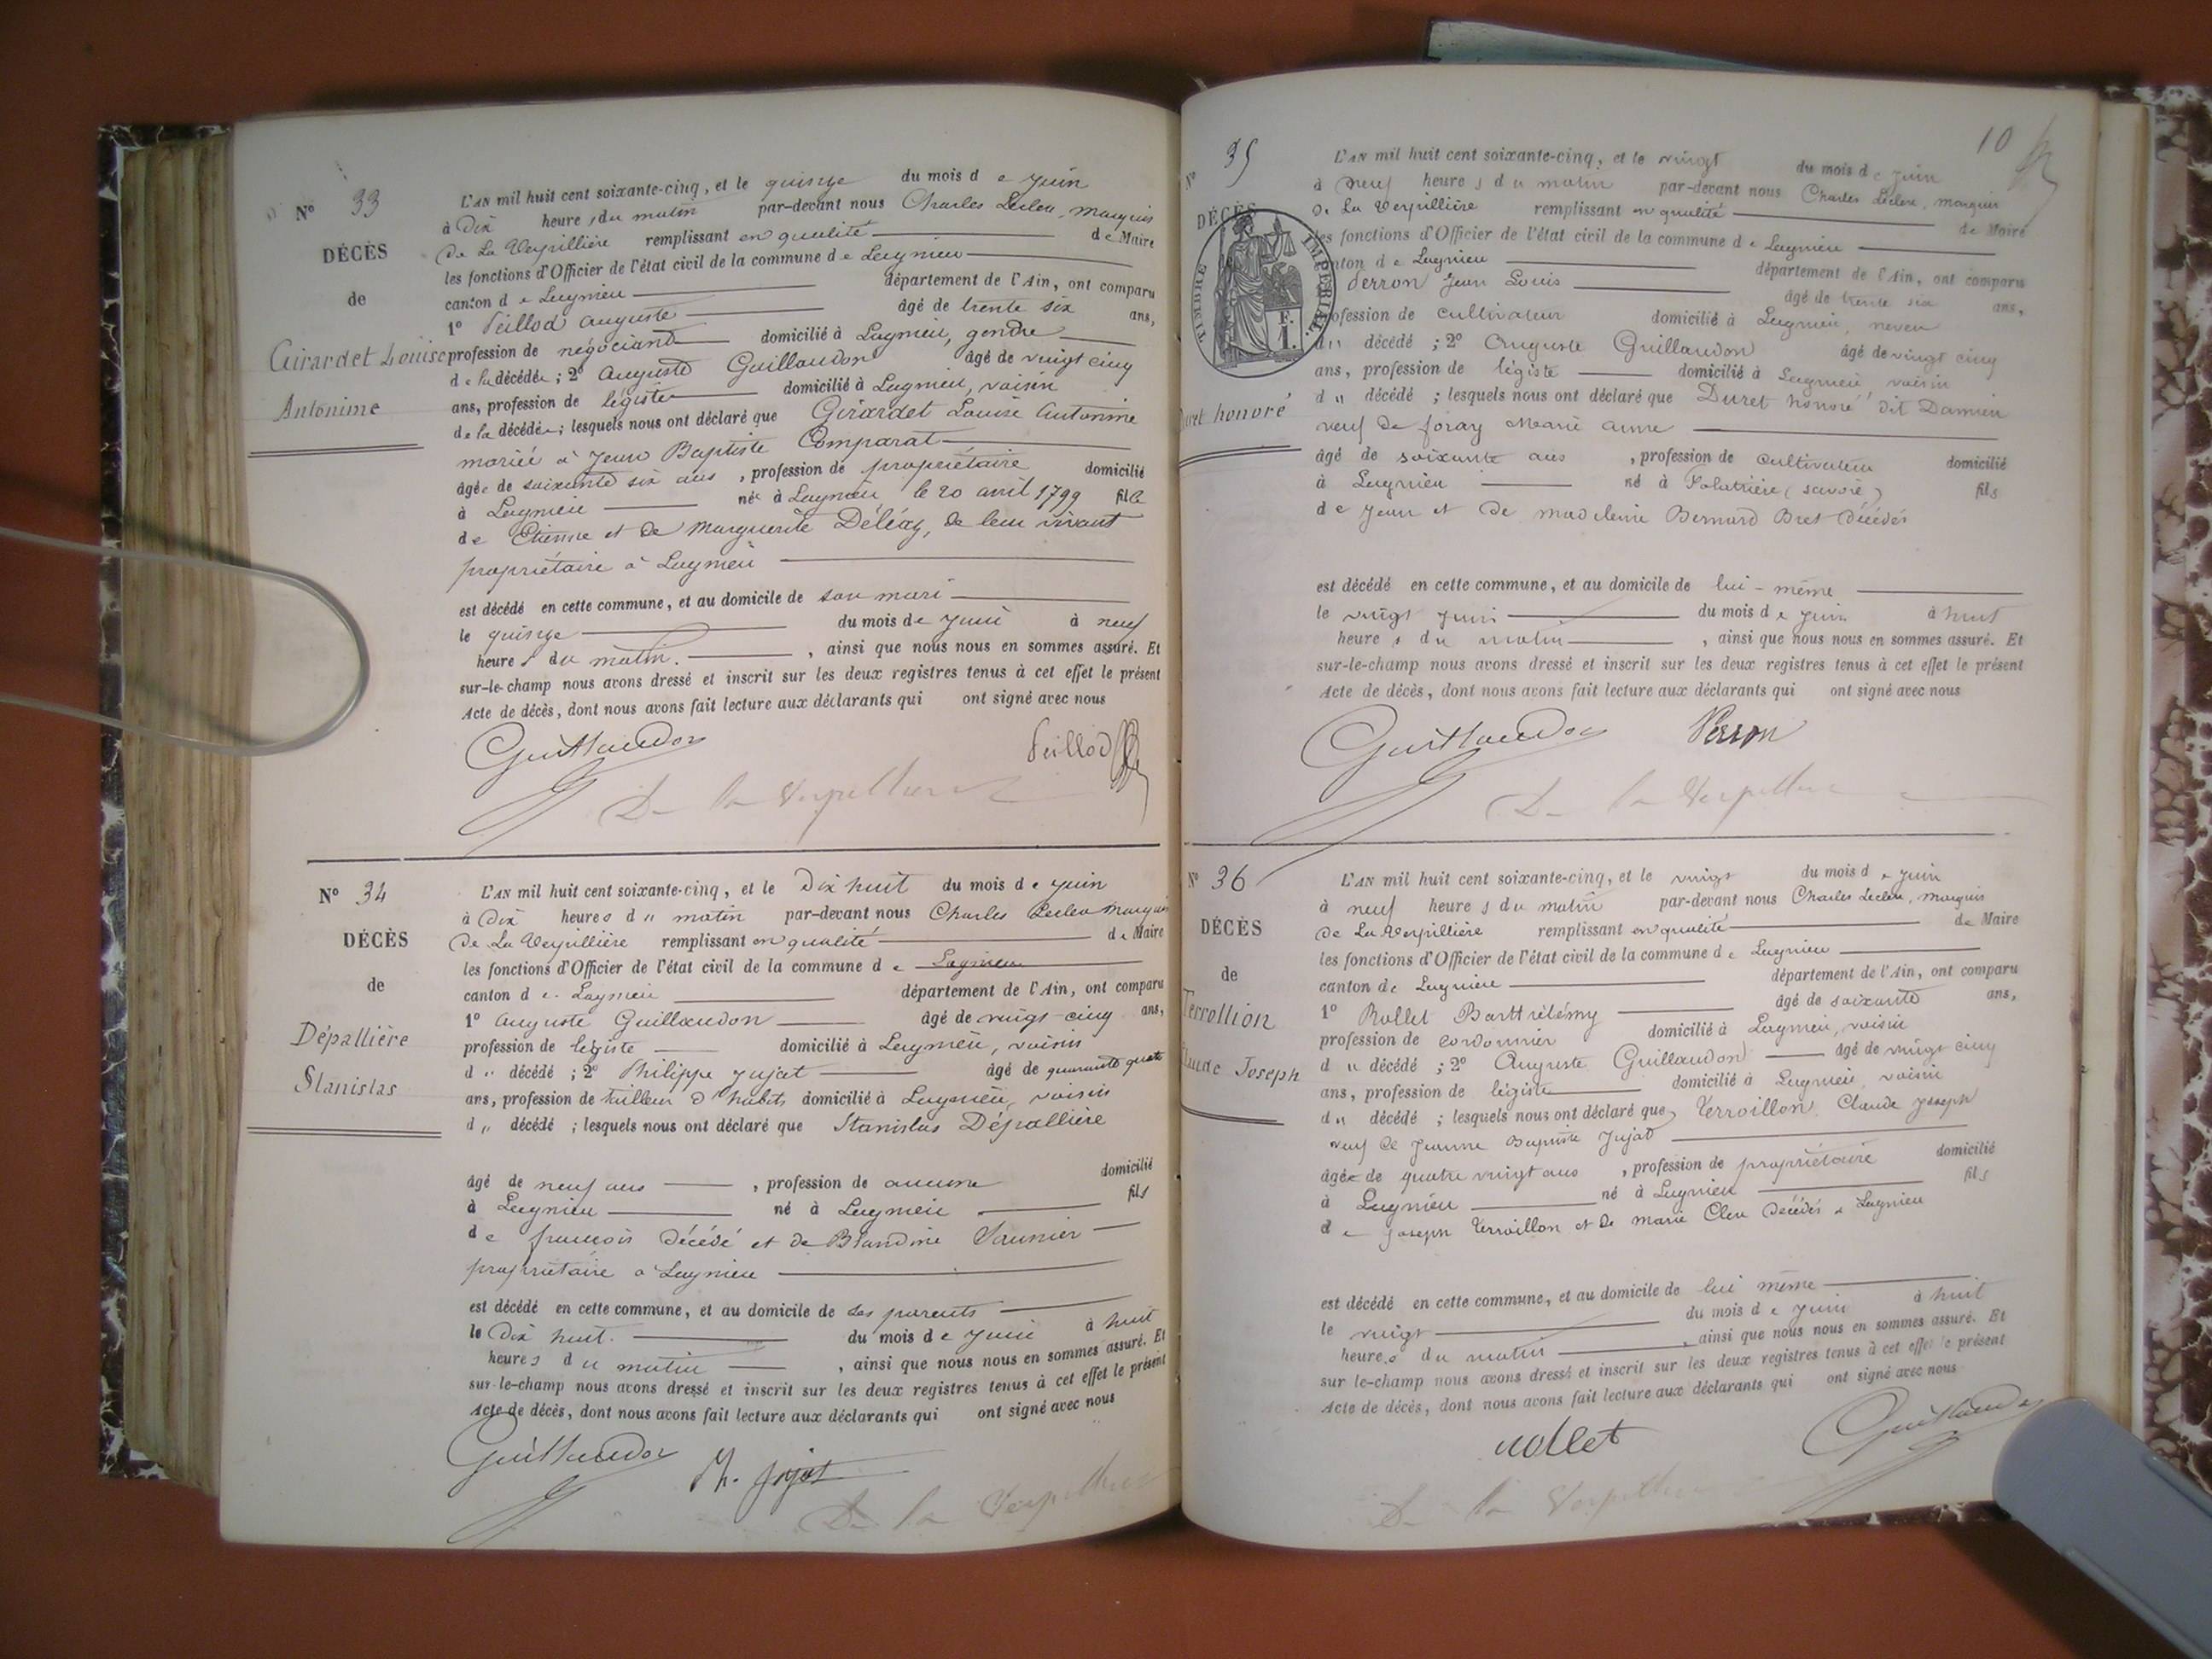 N° 33
DÉCÈS
de
Girardet Louise
Antonime
L'AN mil huit cent soixante-cinq, et le quinze du mois de juin
à Dix heures du matin par-devant nous Charles Leclerc, marquis
De La Verpillière remplissant en qualité de Maire
les fonctions d'Officier de l'état civil de la commune de Lagnieu
canton de Lagnieu département de l'Ain, ont comparu
1° Peillod auguste âgé de trente six ans,
profession de négociand domicilié à Lagnieu, gendre
de la décédée ; 2° Auguste Guillaudon âgé de vingt cinq
ans, profession de légiste domicilié à Lagnieu, voisin
de la décédée ; lesquels nous ont déclaré que Girardet Louise Antonime
mariée à Jean Baptiste Comparat
âgée de soixante six ans, profession de propriétaire domicilié
à Lagnieu née à Lagnieu le 20 avril 1799 fille
de Etienne et de Marguerite , de leur vivant
propriétaire à Lagnieu
est décédé en cette commune, et au domicile de son mari
le quinze du mois de juin à neuf
heures du matin. , ainsi que nous nous en sommes assuré. Et
sur-le-champ nous avons dressé et inscrit sur les deux registres tenus à cet effet le présent
Acte de décès, dont nous avons fait lecture aux déclarants qui ont signé avec nous
Guillaudon Peillod
De la Verpilliere
N° 34
DÉCÈS
de
Dépallière
Stanislas
L'AN mil huit cent soixante-cinq, et le Dix huit du mois de juin
à Dix heures du matin par-devant nous Charles Leclerc marquis
De La Verpillière remplissant en qualité de Maire
les fonctions d'Officier de l'état civil de la commune de Lagnieu
canton de Lagnieu département de l'Ain, ont comparu
1° Auguste Guillaudon âgé de vingt-cinq ans,
profession de légiste domicilié à Lagnieu, voisin
du décédé ; 2° Philippe Jujat âgé de quarante quatre
ans, profession de tailleur d'habits domicilié à Lagnieu, voisin
du décédé ; lesquels nous ont déclaré que Stanislas Dépallière
âgé de neuf ans , profession de aucune domicilié
à Lagnieu né à Lagnieu fils
de françois Décédé et de Blandine Saunier
propriétaire à Lagnieu
est décédé en cette commune, et au domicile de ses parents
le Dix huit. du mois de juin à huit
heures du matin , ainsi que nous nous en sommes assuré. Et
sur-le-champ nous avons dressé et inscrit sur les deux registres tenus à cet effet le présent
Acte de décès, dont nous avons fait lecture aux déclarants qui ont signé avec nous
Guillaudon Ph. Jujat
De la Verpilliere
10
N° 35
DÉCÈS
TIMBRE IMPÉRIAL
F.
1.
Duret honoré
L'AN mil huit cent soixante-cinq, et le vingt du mois de juin
à neuf heures du matin par-devant nous Charles Leclerc, marquis
De La Verpillière remplissant en qualité de Maire
les fonctions d'Officier de l'état civil de la commune de Lagnieu
canton de Lagnieu département de l'Ain, ont comparu
Perron Jean Louis âgé de trente six ans,
profession de cultivateur domicilié à Lagnieu, neveu
du décédé ; 2° Auguste Guillaudon âgé de vingt cinq
ans, profession de légiste domicilié à Lagnieu voisin
du décédé ; lesquels nous ont déclaré que Duret honoré dit Damien
veuf de foray Marie anne
âgé de soixante ans , profession de cultivateur domicilié
à Lagnieu né à (savoie) fils
de Jean et de madeleine Bernard Bret Décédés
est décédé en cette commune, et au domicile de lui-même
le vingt juin du mois de juin à huit
heures du matin , ainsi que nous nous en sommes assuré. Et
sur-le-champ nous avons dressé et inscrit sur les deux registres tenus à cet effet le présent
Acte de décès, dont nous avons fait lecture aux déclarants qui ont signé avec nous
Guillaudon Perron
De la Verpilliere
N° 36
DÉCÈS
de
Terrollion
Claude Joseph
L'AN mil huit cent soixante-cinq, et le vingt du mois de juin
à neuf heures du matin par-devant nous Charles Leclerc, marquis
De La Verpillière remplissant en qualité de Maire
les fonctions d'Officier de l'état civil de la commune de Lagnieu
canton de Lagnieu département de l'Ain, ont comparu
1° Rollet Barthélémy âgé de soixante ans,
profession de cordonnier domicilié à Lagnieu, voisin
du décédé ; 2° Auguste Guillaudon âgé de vingt cinq
ans, profession de légiste domicilié à Lagnieu, voisin
du décédé ; lesquels nous ont déclaré que Terroillon, Claude Joseph
veuf de Jeanne Baptiste Jujat
âgé de quatre vingt ans , profession de propriétaire domicilié
à Lagnieu né à Lagnieu fils
de Joseph Terroillon et de marie Décédés à Lagnieu
est décédé en cette commune, et au domicile de lui même
le vingt du mois de juin à huit
heures du matin , ainsi que nous nous en sommes assuré. Et
sur le-champ nous avons dressé et inscrit sur les deux registres tenus à cet effet le présent
Acte de décès, dont nous avons fait lecture aux déclarants qui ont signé avec nous
rollet Guillaudon
De la Verpilliere